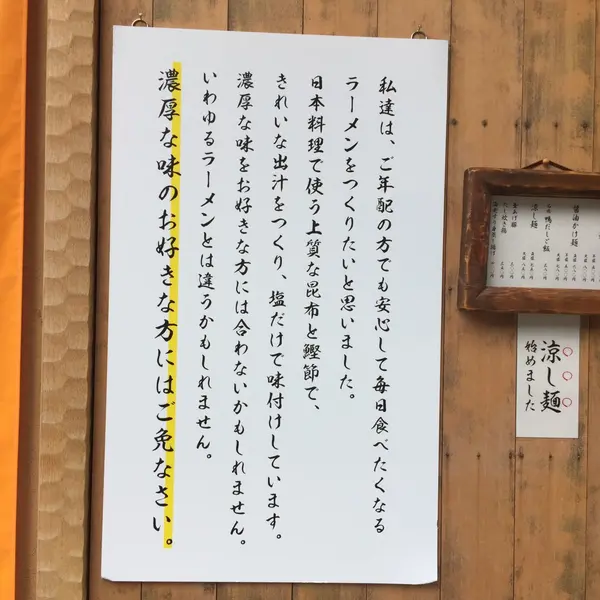 私達は、ご年配の方でも安心して毎日食べたくなる
ラーメンをつくりたいと思いました。
日本料理で使う上質な昆布と鰹節で、
きれいな出汁をつくり、塩だけで味付けしています。
濃厚な味をお好きな方には合わないかもしれません。
いわゆるラーメンとは違うかもしれません。
濃厚な味のお好きな方にはご免なさい。
醤油かけ麺
鴨だしご飯
涼し麺
○○○
涼し麺
始めました